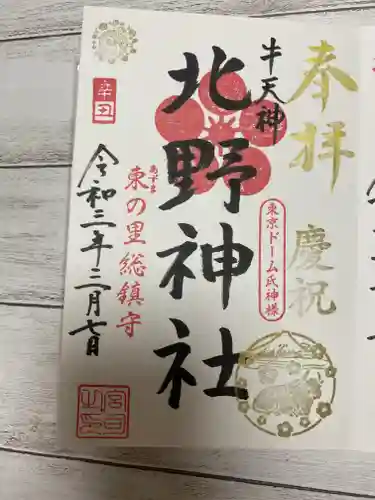 奉拝 慶祝
牛天神
北野神社
東京ドーム氏神様
あずま
東の里総鎮守
辛丑
令和三年三月七日